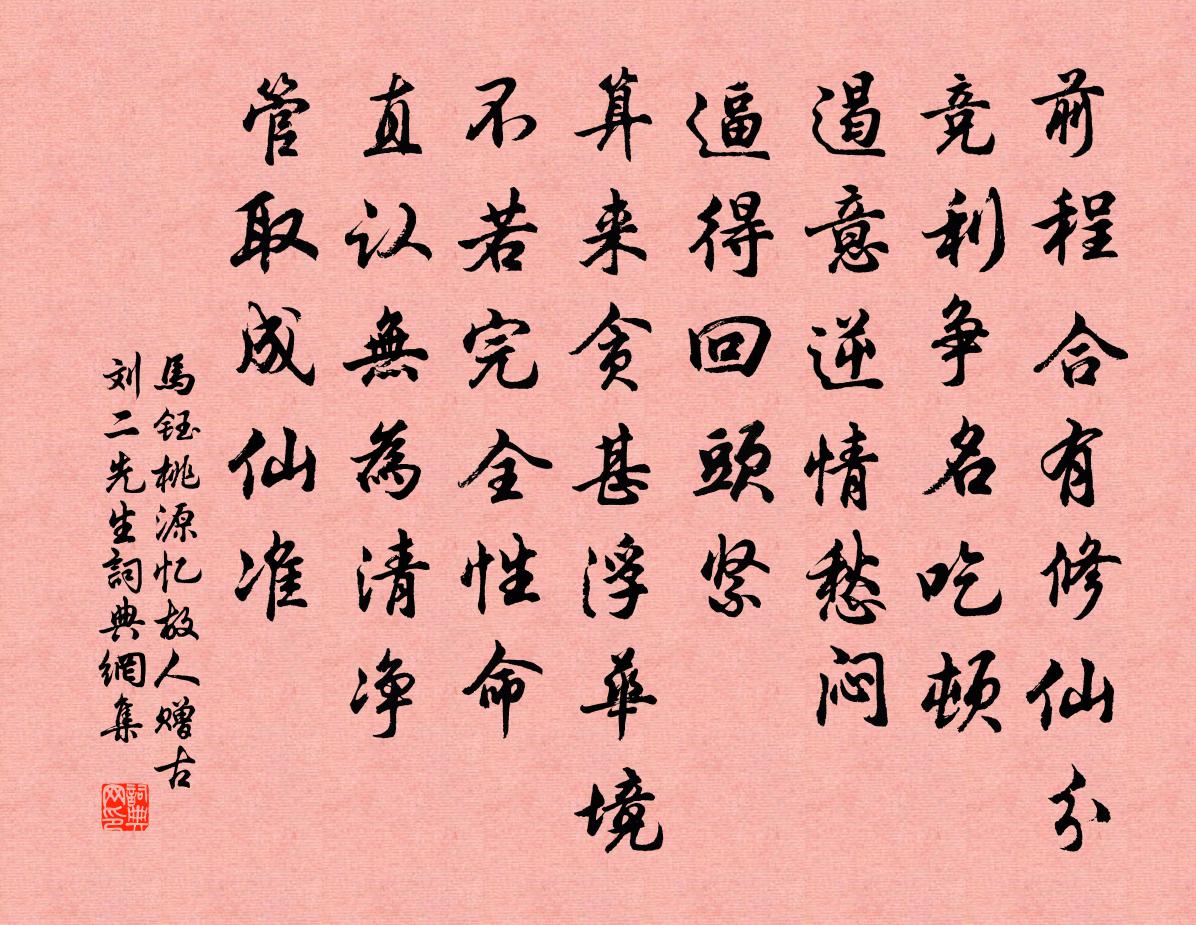 前程合有修仙分
竞利争名吃顿
遏意逆情愁闷
逼得回頭紧
算来贪甚浮华境
不若完全性命
直认無為清净
管取成仙准
馬钰桃源忆故人赠古
刘二先生詞典網集
詞典网印